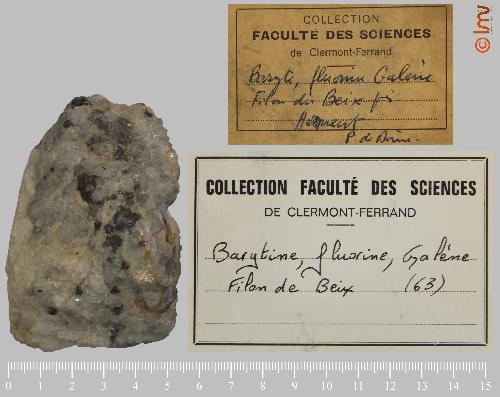 COLLECTION
FACULTÉ DES SCIENCES
de Clermont-Ferrand
Baryte, fluorine Galène
Filon du Beix
P. de Dôme.
lmv
COLLECTION FACULTÉ DES SCIENCES
DE CLERMONT-FERRAND
Barytine, fluorine, Galène
Filon de Beix (63)
0 1 2 3 4 5 6 7 8 9 10 11 12 13 14 15